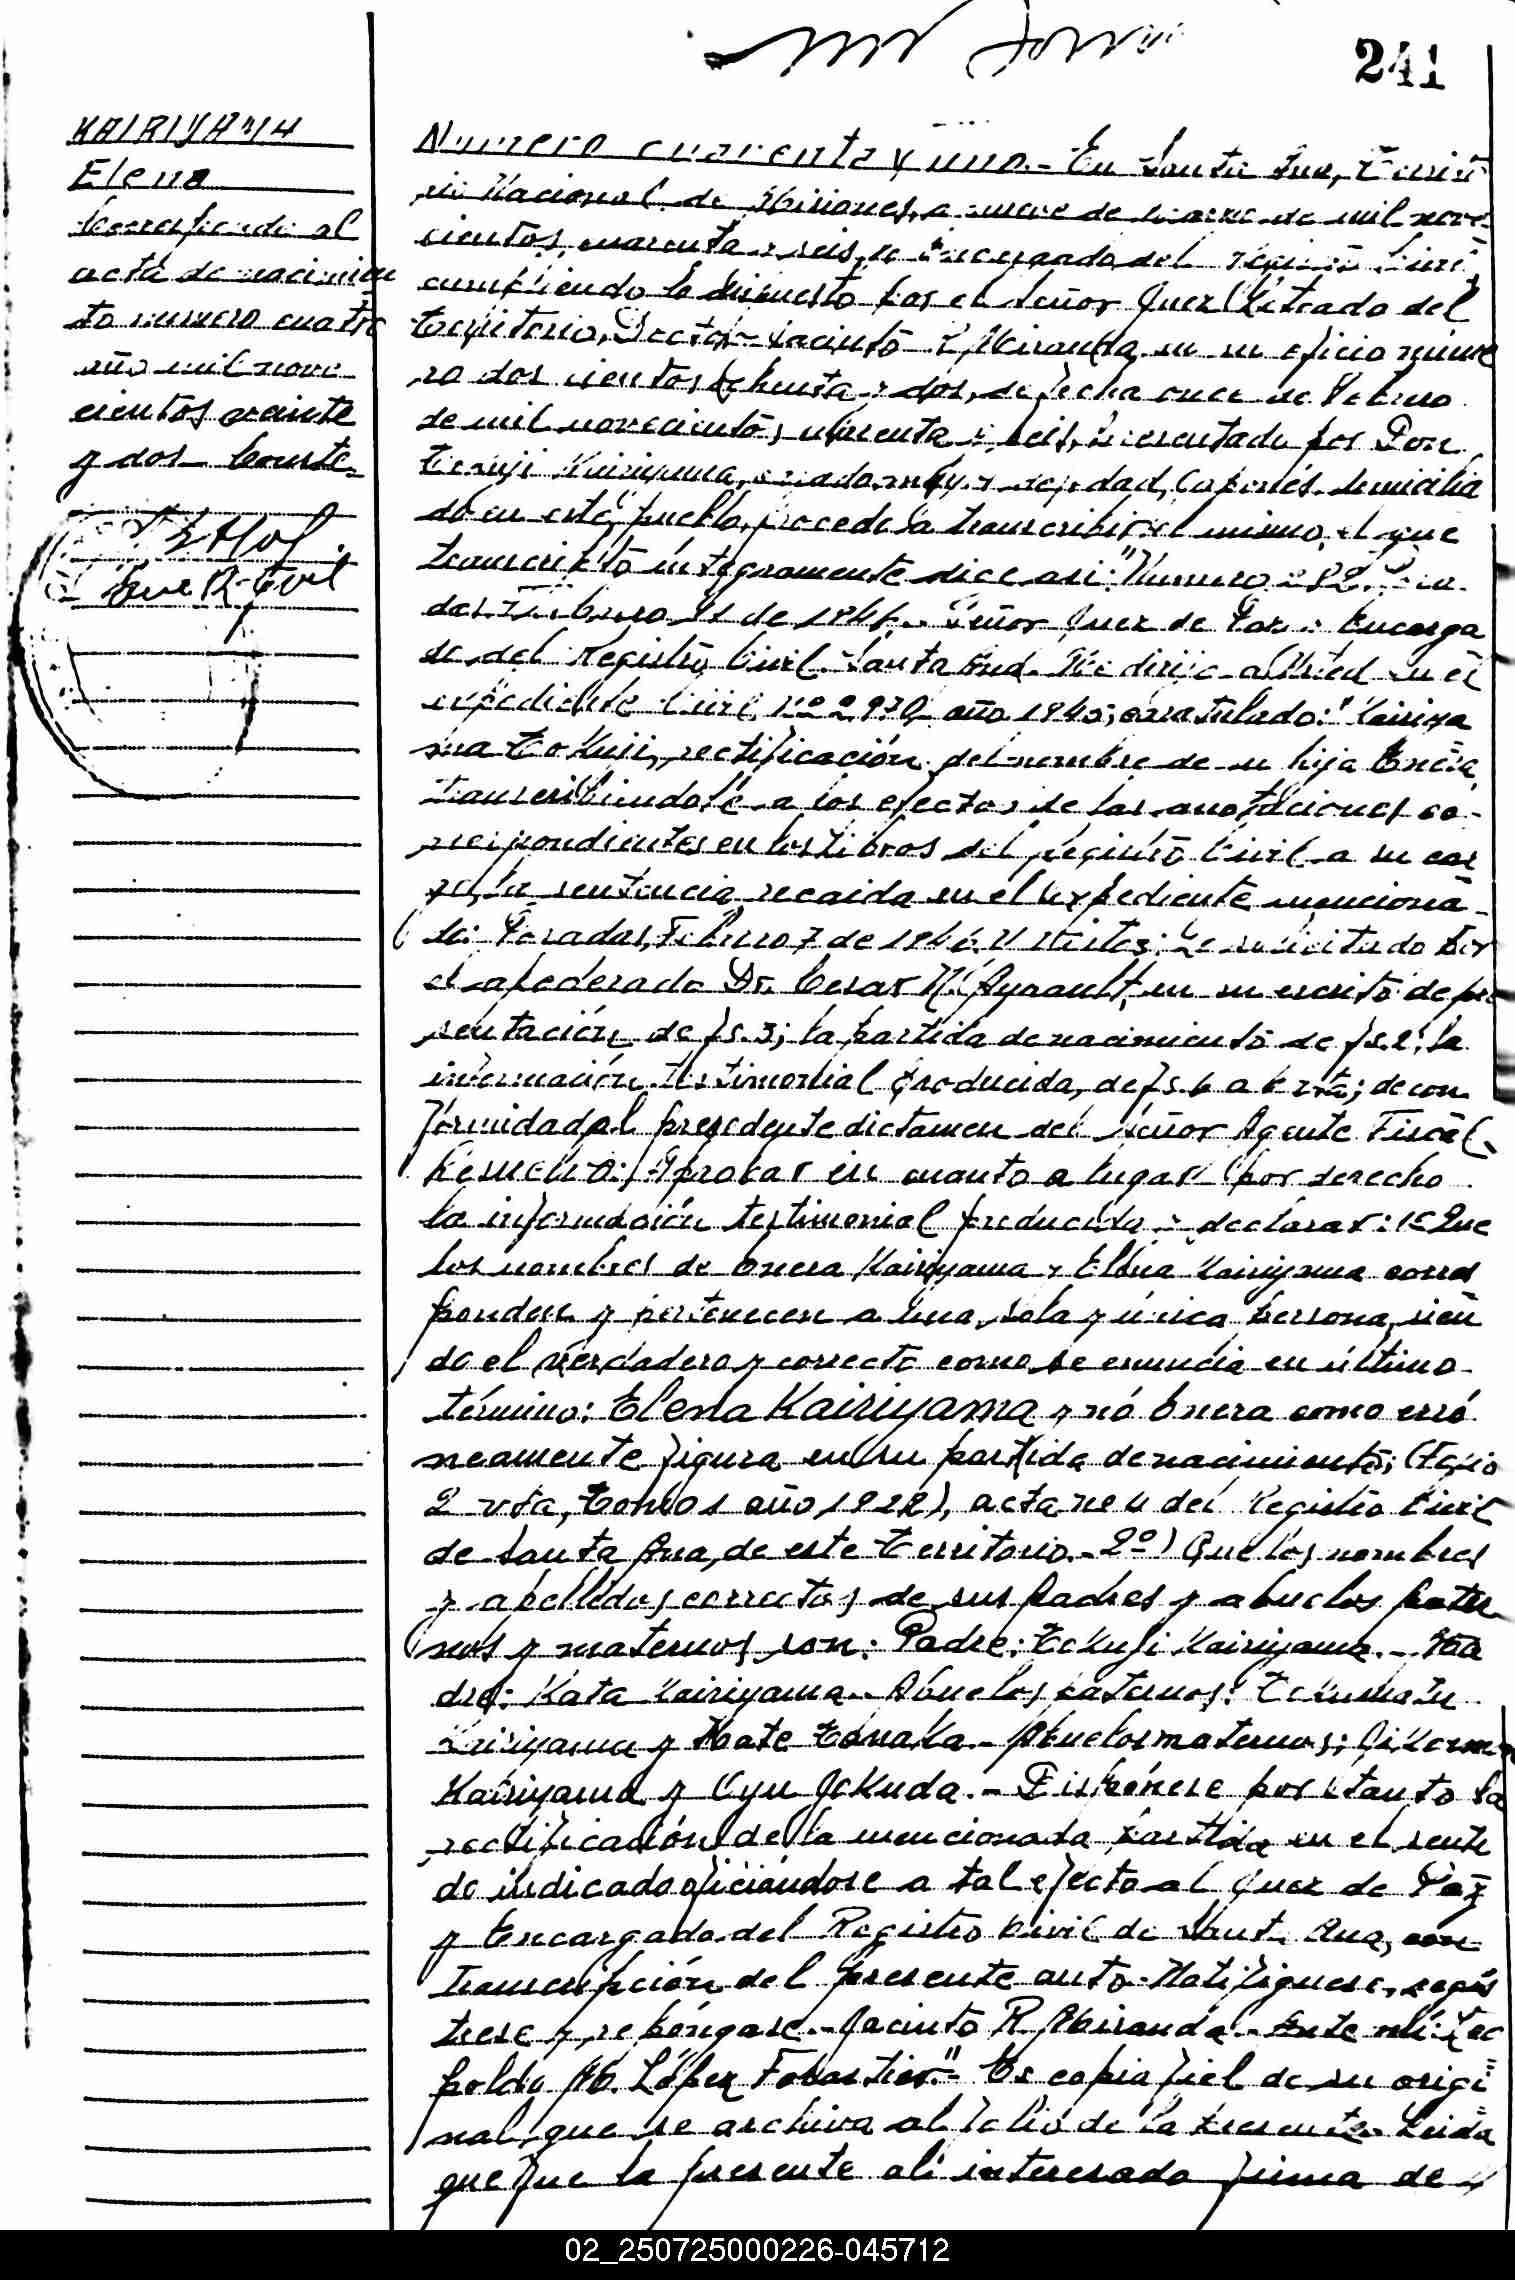 241
KAIRIYAMA
Elena
Corresponde al
acta de nacimien
to numero cuatro
año mil nove
cientos veinte
y dos Conste.
Numero cuarenta y uno.- En Santa Ana, Territo
rio Nacional de Misiones, a nueve de de mil nove
cientos cuarenta y seis, el Encargado del registro Civil,
cumpliendo lo dispuesto por el señor Juez Letrado del
territorio, Doctor Jacinto R. Miranda en su oficio núme
ro dos cientos ochenta y dos, de fecha once de Febrero
de mil novecientos cuarenta y seis, presentado por Don
Kairiyama, mayor de edad, Japonés, domicilia
do en este pueblo, procede a transcribir el mismo, el que
transcripto íntegramente dice asi: "Numero 282. Posa
das, Febrero 11 de 1946. Señor Juez de Paz y Encarga
do del Registro Civil. Santa Ana. Me dirijo a Usted en el
expediente Civil, Nº año 1945, caratulado: "Kairiya
ma Tokuji, rectificación del nombre de su hija Enera,
transcribiendole a los efectos de las anotaciones co-
rrespondientes en los libros del registro Civil a su car
go, la sentencia recaida en el expediente menciona-
do: Posadas, Febrero 7 de 1946. Y Vistos: Lo solicitado por
el apoderado Dr. Cesar N. en su escrito de pre
sentación de fs. 3; la partida de nacimiento de fs. 2; la
información testimonial producida, de fs. 6 a 6 vta; de con
formidad al precedente dictamen del señor Agente Fiscal,
Resuelvo: Aprobar en cuanto a lugar por derecho
la información testimonial producida y declarar: 1º Que
los nombres de Enera Kairiyama y Elena Kairiyama corres
ponden y pertenecen a una, sola y única persona, sien
do el verdadero y correcto como se enuncia en último
término: Elena Kairiyama y nó Enera como erró
neamente figura en su partida de nacimiento; (Folio
2 vta, Tomo 1 año 1922), acta nº 4 del Registro Civil
de Santa Ana, de este Territorio.- 2º) Que los nombres
y apellidos correctos de sus padres y abuelos pater
nos y maternos son: Padre: Tokuji Kairiyama.- Ma
dre: Kata Kairiyama.- Abuelos paternos:
Kairiyama y Tanaka.- Abuelos maternos:
Kairiyama y Oyu Jokuda.- Dispónese por tanto la
rectificación de la mencionada partida en el senti
do indicado oficiándose a tal efecto al Juez de Paz
y Encargado del Registro Civil de Santa Ana, con
transcripción del presente auto. Notifiquese, regis
trese y repóngase.- Jacinto R. Miranda.- Ante mí: Leo
poldo M. López Forastier."- Es copia fiel de su origi
nal que se archiva al folio de la presente. Leida
que fue la presente al interesado firma de
02_250725000226-045712